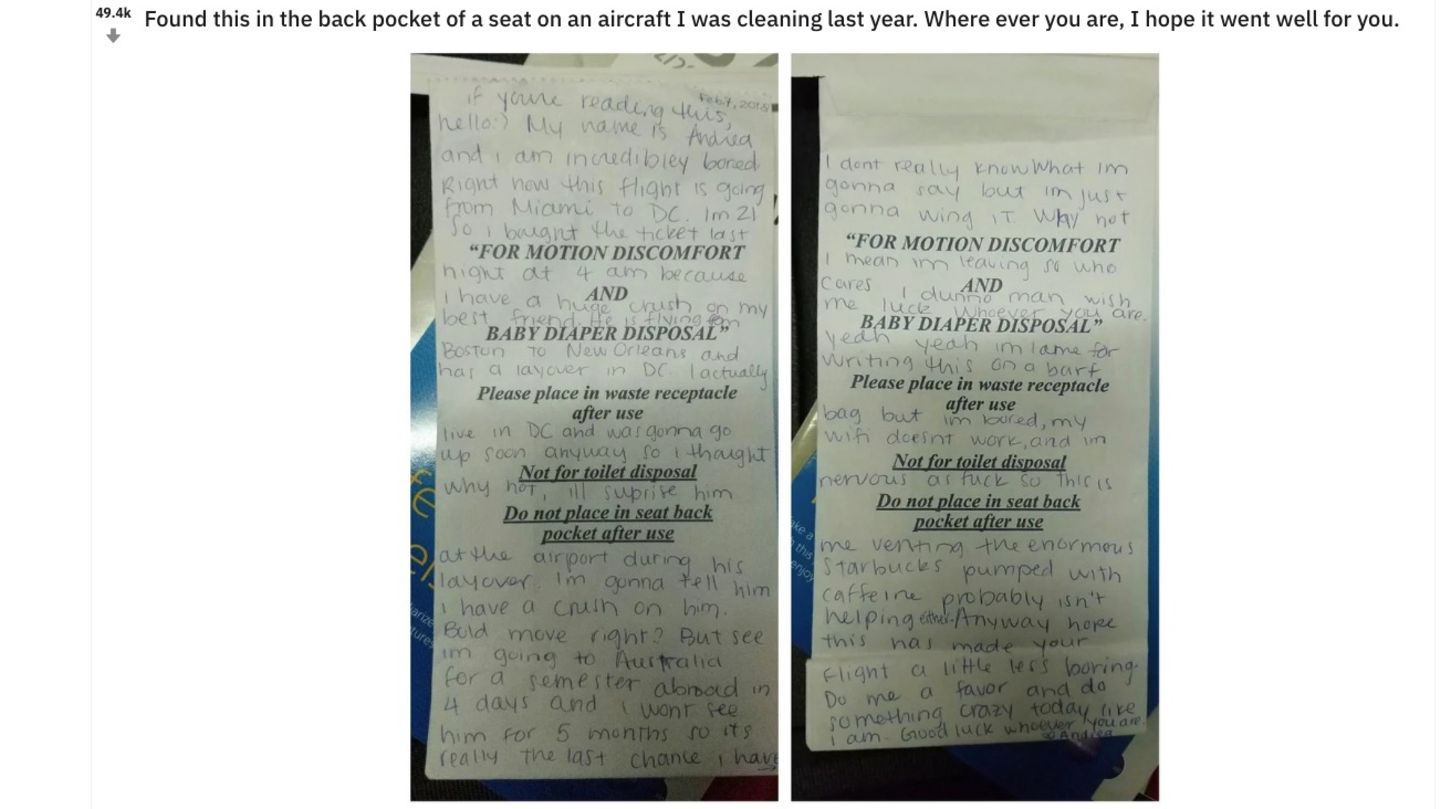 49.4k
Found this in the back pocket of a seat on an aircraft I was cleaning last year. Where ever you are, I hope it went well for you.
Feb 7, 2018
if youre reading this,
hello:) My name is Andrea
and i am incredibley bored
Right now this flight is going
from Miami to DC. Im 21
So i baught the ticket last
"FOR MOTION DISCOMFORT
night at 4 am because
AND
i have a huge crush on my
best friend. He is flying from
BABY DIAPER DISPOSAL"
Boston to New Orleans and
has a layover in DC. I actually
Please place in waste receptacle
after use
live in DC and was gonna go
up soon anyway so i thaught
Not for toilet disposal
why not, ill suprise him
Do not place in seat back
pocket after use
at the airport during his
layover. Im gonna tell him
i have a crush on him.
Bold move right? But see
im going to Australia
for a semester abroad in
4 days and i wont see
him for 5 months so its
really the last chance i have
I dont really know what im
gonna say but im just
gonna wing it why not
"FOR MOTION DISCOMFORT
I mean im leaving so who
AND
cares I dunno man wish
me luck whoever you are.
BABY DIAPER DISPOSAL"
yeah yeah im lame for
writing this on a barf
Please place in waste receptacle
after use
bag but im bored, my
wifi doesnt work, and im
Not for toilet disposal
nervous as fuck so this is
Do not place in seat back
pocket after use
me venting the enormous
Starbucks pumped with
caffeine probably isn't
helping either. Anyway hope
this has made your
flight a little less boring.
Do me a favor and do
something crazy today like
i am. Good luck whoever you are.
Andrea